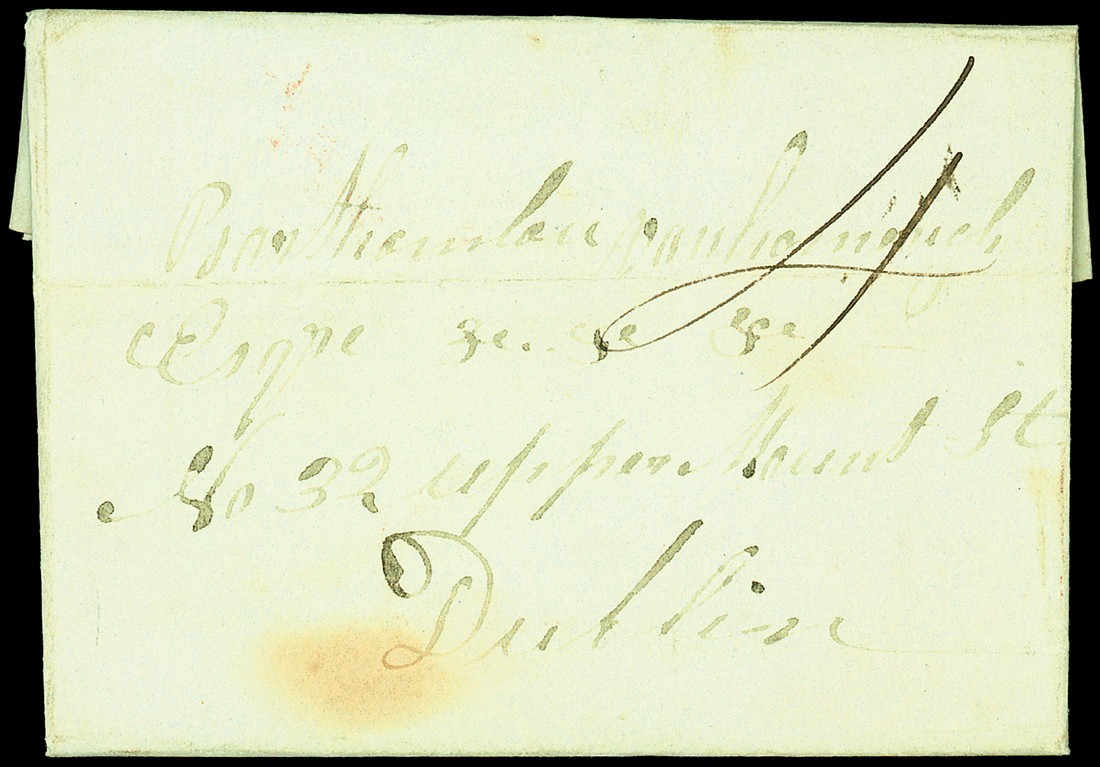 4
Esqre &c. &c &c
No 32 upper Mount St
Dublin